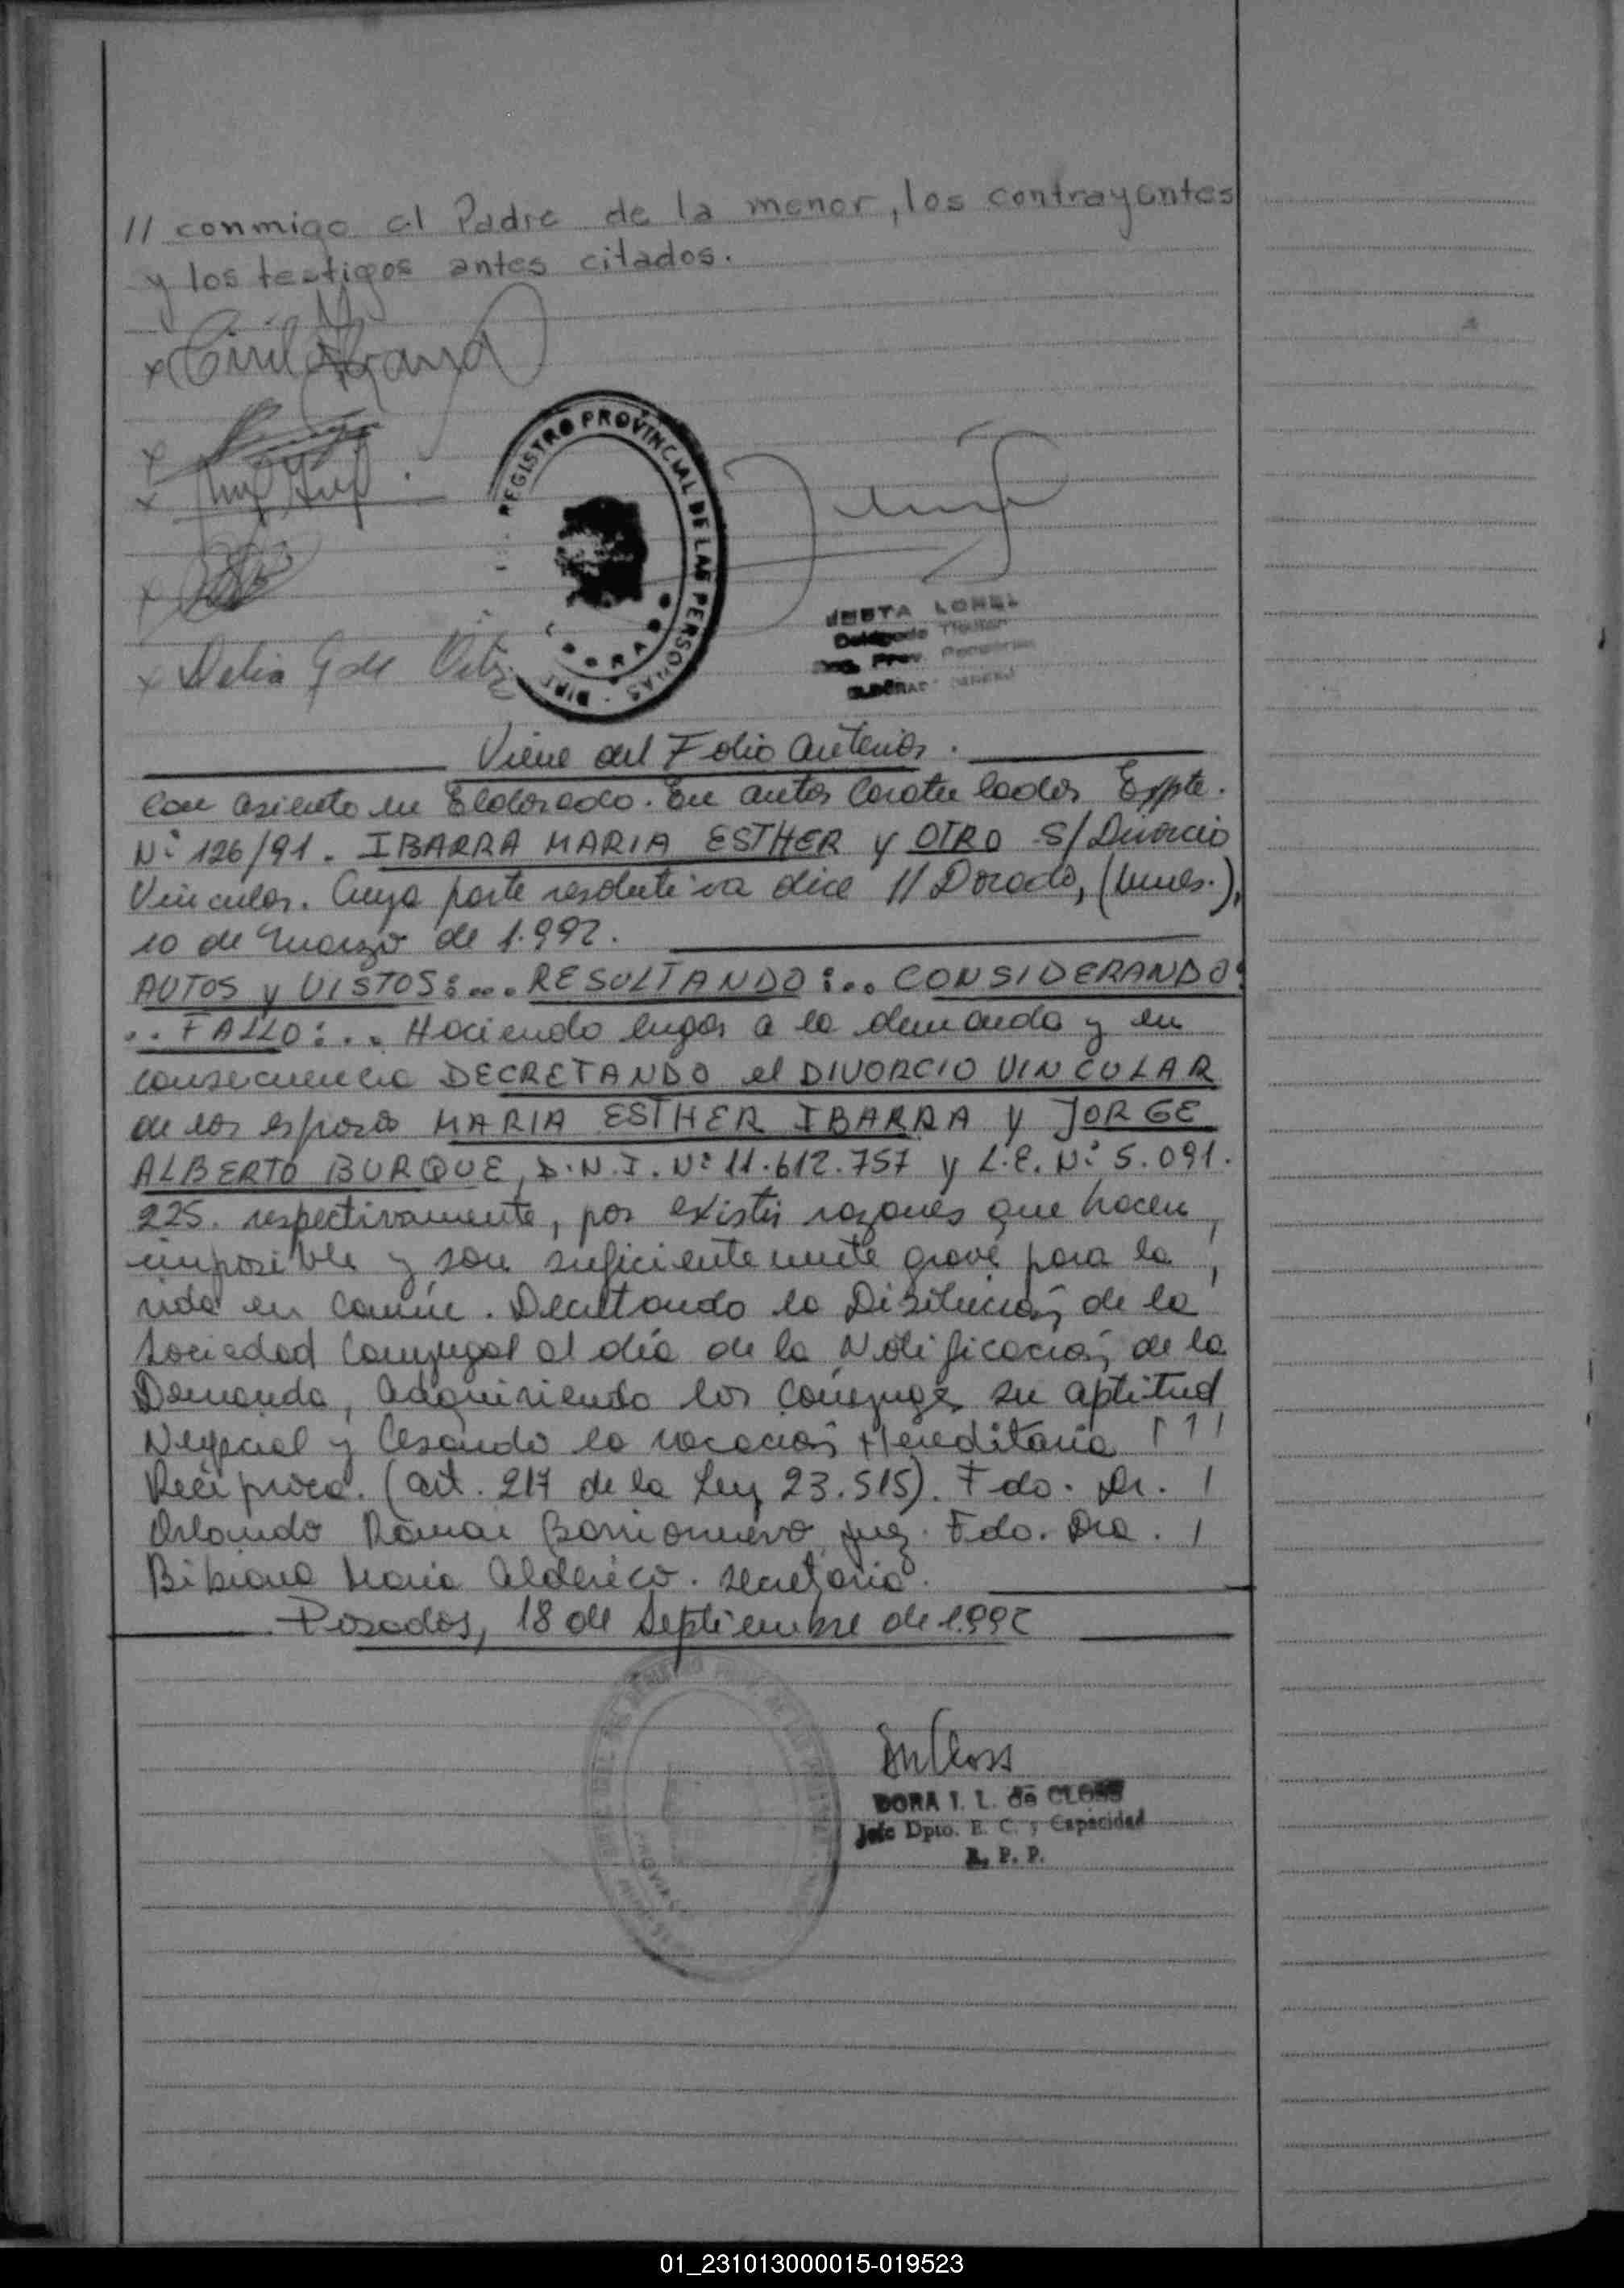 // conmigo el Padre de la menor, los contrayentes
y los testigos antes citados.
x
x
x
x
x Delia G de
REGISTRO PROVINCIAL DE LAS PERSONAS
Viene del Folio anterior.
con asiento en Eldorado. En autos Caratulados Expte.
Nº 126/91. IBARRA MARIA ESTHER y OTRO S/Divorcio
Vincular. Cuya parte resolutiva dice // Dorado, (Mnes.),
10 de Marzo de 1.992.
AUTOS y VISTOS:... RESULTANDO:.. CONSIDERANDO:
.. FALLO:... Haciendo lugar a la demanda y en
consecuencia DECRETANDO el DIVORCIO VINCULAR
de los esposos MARIA ESTHER IBARRA y JORGE
ALBERTO BURQUE, D.N.I. Nº 11.612.757 y L.E. Nº 5.091.
225. respectivamente, por existir razones que hacen
imposible y son suficientemente grave para la
vida en Común. Decretando la Disolución de la
Sociedad Conyugal al día de la Notificación de la
Demanda, adquiriendo los Conyuges su aptitud
Negocial y Cesando la vocación Hereditaria
Reciproca. (art. 217 de la Ley 23.515). Fdo. Dr.
Orlando Ramon Barrionuevo Juez. Fdo. Dra.
Bibiana Maria Alderico. secretaria.
Posadas, 18 de Septiembre de 1.992
DORA I. L. de CLOSS
Jefe Dpto. E. C. y Capacidad
R. P. P.
01_231013000015-019523